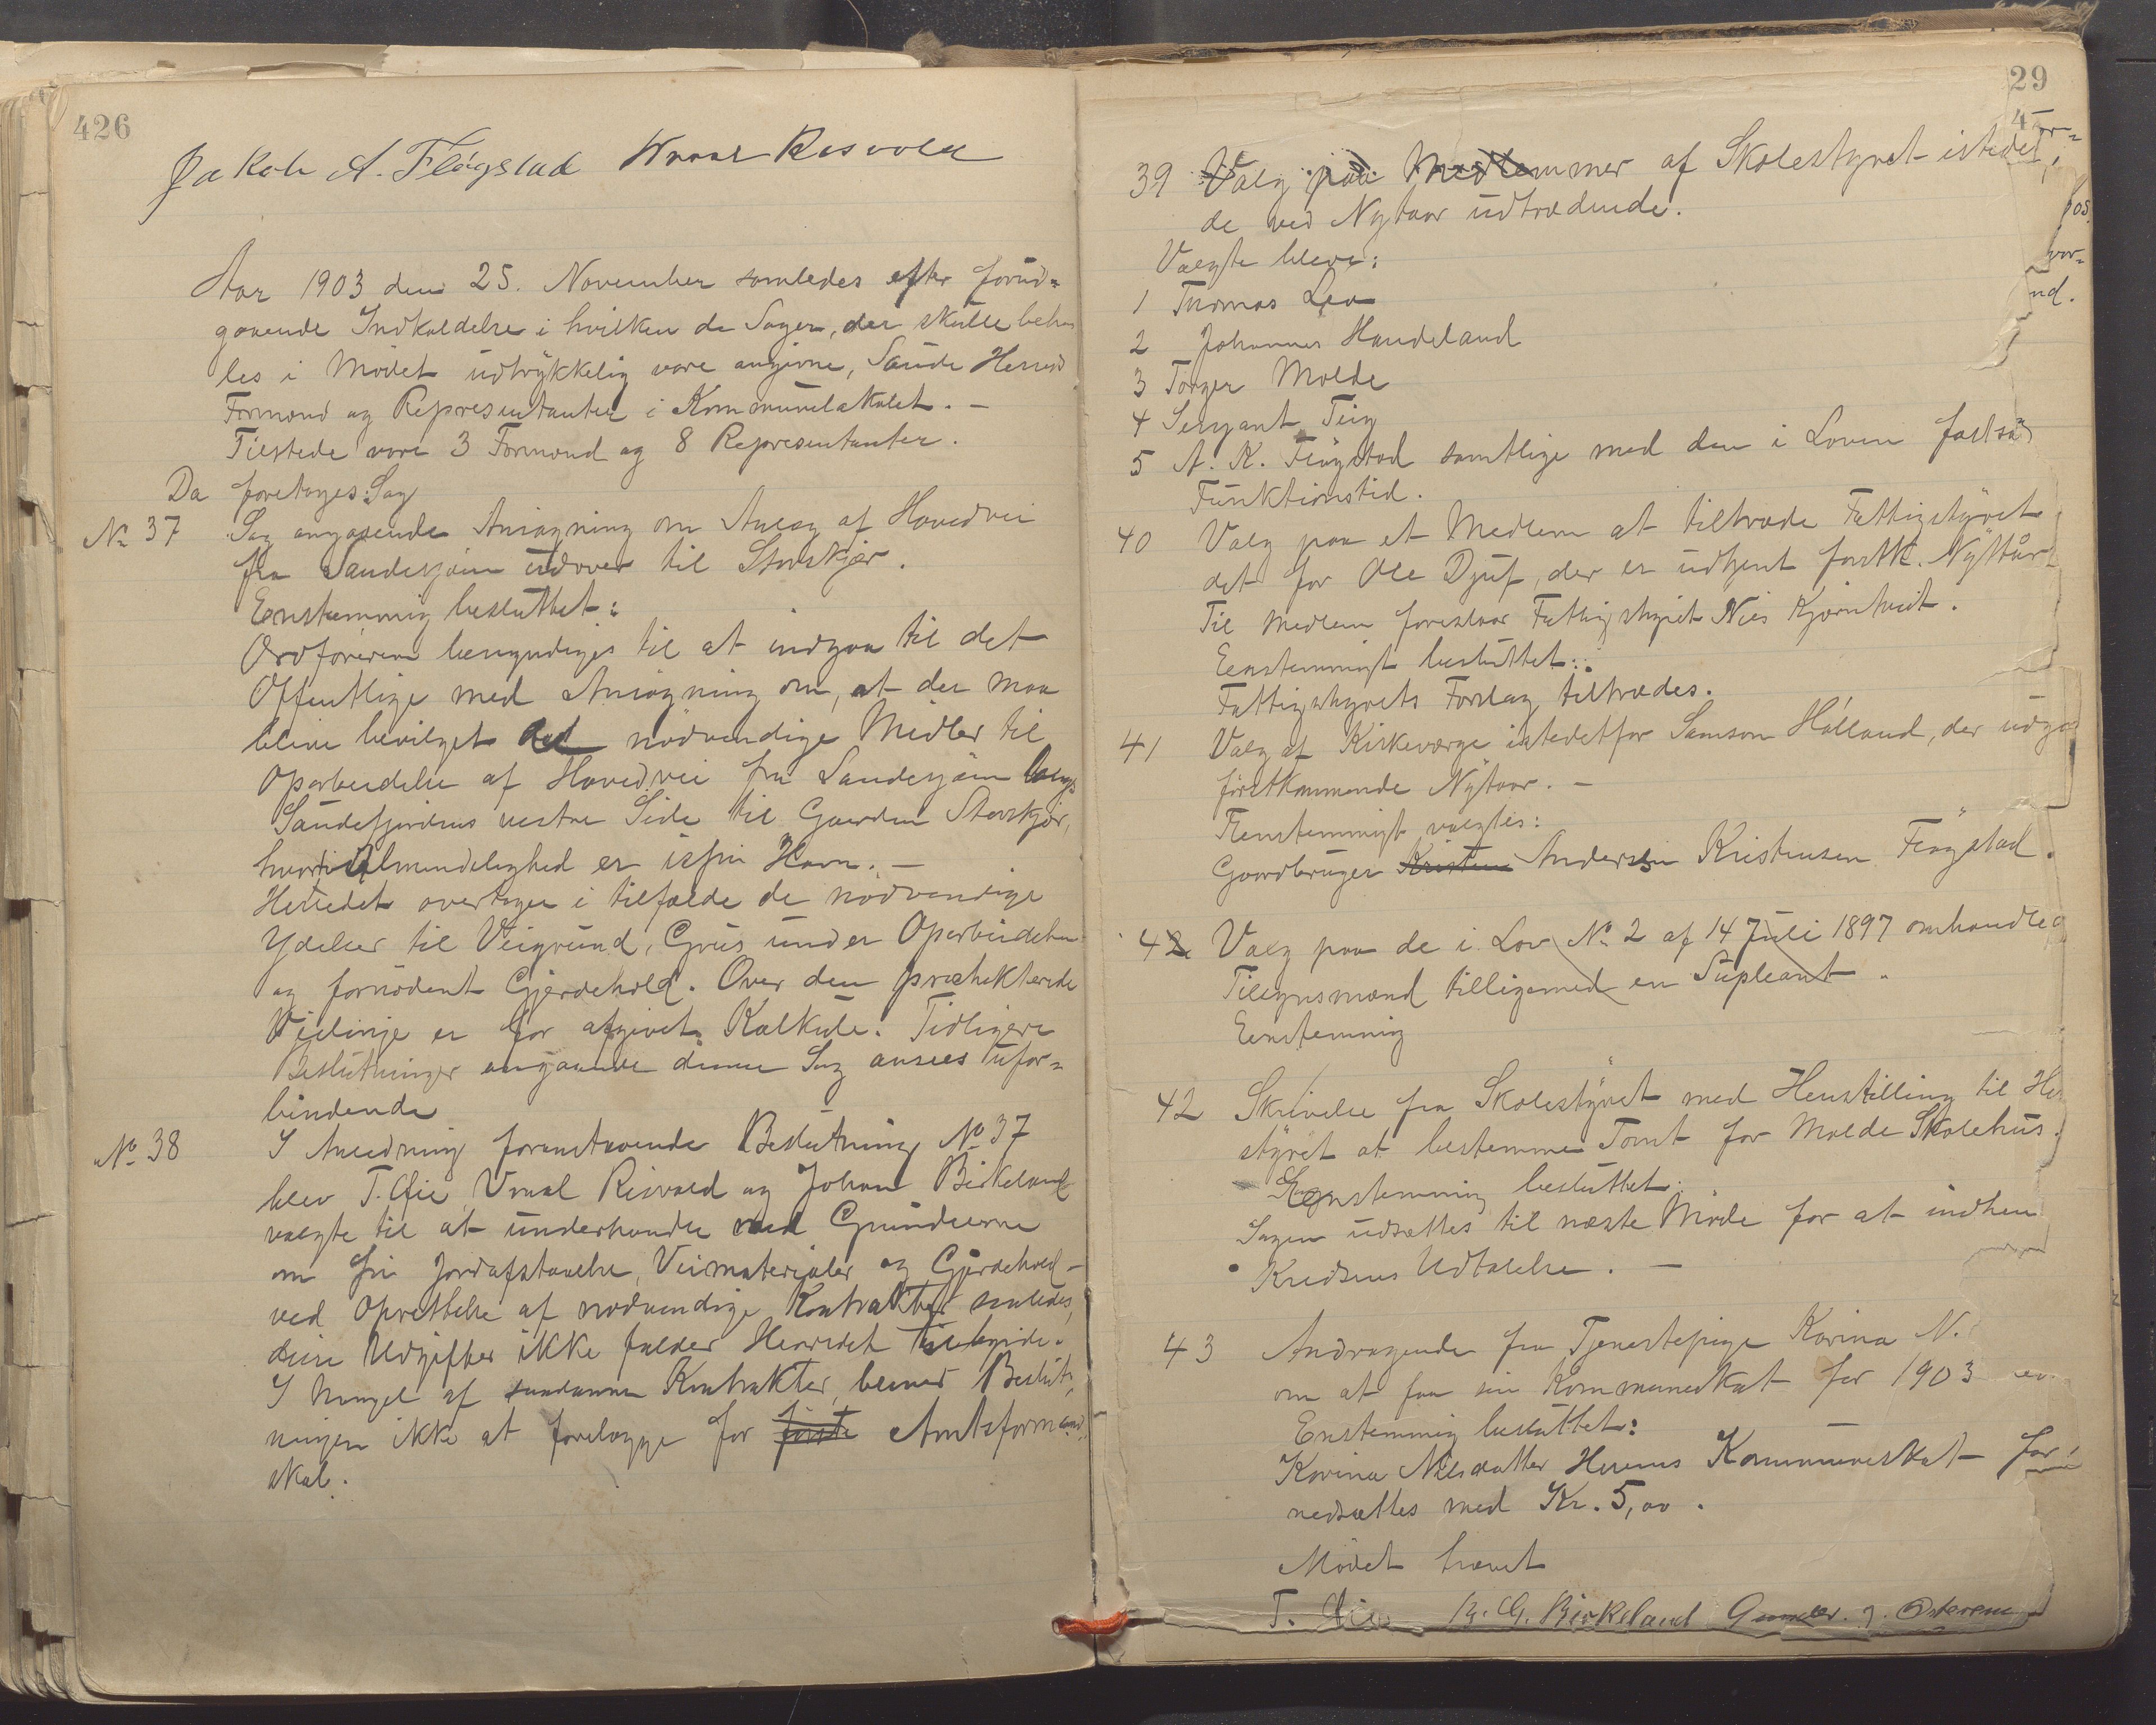 426
Jakob A. Fløgstad Vraal Risvold
Aar 1903 den 25. November samledes efter forud-
gaaende Indkaldelse i hvilken de Sager, der skulle behand
les i Mødet udtrykkelig vare angivne, Saude Herreds
Formænd og Repræsentanter i Kommunelokalet. –
Tilstede vare 3 Formænd og 8 Repræsentanter.
Da foretages: Sag
No 37 Sag angaaende Ansøgning om Anlæg af Hovedvei
fra Saudesjøen udover til Storskjær.
Enstemmig besluttet:
Ordføreren bemyndiges til at indgaa til det
Offentlige med Ansøgning om, at der maa
blive bevilget nødvendige Midler til
Oparbeidelse af Hovedvei fra Saudesjøen langs
Saudefjordens vestre Side til Gaarden Storskjær,
hvor i Almindelighed er isfri Havn. –
Herredet overtager i tilfælde de nødvendige
Ydelser til Veigrund, Grus under Oparbeidelsen
og fornødent Gjerdehold. Over den projekterede
Veilinje er før afgivet Kalkule. Tidligere
Beslutninger angaaende denne Sag ansees ufor-
bindende
No 38 I Anledning foranstaaende Beslutning No 37
blev T. Øie, Vraal Risvold og Johan Birkeland
valgte til at underhandle med Grundeierne
om fri Jordafstaaelse, Veimaterialer og Gjerdehold –
ved Oprettelse af nødvendige Kontrakter saaledes,
disse Udgifter ikke falder Herredet tilbyrde.
I Mangel af saadanne Kontrakter bliver Beslut-
ningen ikke at forelægge for første Amtsformand-
skab.
29
39 Valg paa Medlemmer af Skolestyret istedetfor
de ved Nytaar udtrædende.
Valgte bleve:
1 Thomas Lea
2 Johannes Handeland
3 Torger Molde
4 Sergant Teig
5 A. K. Fløgstad samtlige med den i Loven fastsa
Funktionstid.
40 Valg paa et Medlem at tiltræde Fattigstyret
det for Ole Djuf, der er udtjent førstk. Nyttår
Til Medlem foreslaar Fattigstyret Nils Kjørntveit.
Eenstemmigt besluttet:
Fattigstyrets Forslag tiltrædes.
41 Valg af Kirkeværge istedetfor Samson Hålland, der udga
førstkommende Nytaar. –
Eenstemmigt valgtes:
Gaardbruger Kristen Anderssen Kristensen Fløgstad.
42 Valg paa de i Lov No 2 af 14 Juli 1897 omhandle
Tilsynsmænd tilligemed en Supleant.
Eenstemmig
42 Skrivelse fra Skolestyret med Henstilling til Her
styret at bestemme Tomt for Molde Skolehus.
Eenstemmig besluttet:
Sagen udsættes til næste Møde for at indhen
Kredsens Udtalelse. –
43 Andragende fra Tjenestepige Korina N.
om at faa sin Kommuneskat for 1903
Enstemmig besluttet:
Korina Nilsdatter Herems Kommuneskat for
nedsættes med Kr. 5,00.
Mødet hævet
T. Øie B. G. Birkeland